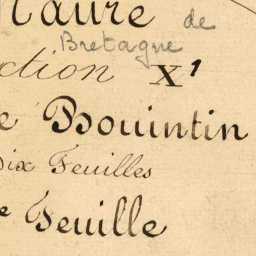 Maure de
Bretagne
ction X1
e Bouintin
Dix Feuilles
e Feuille